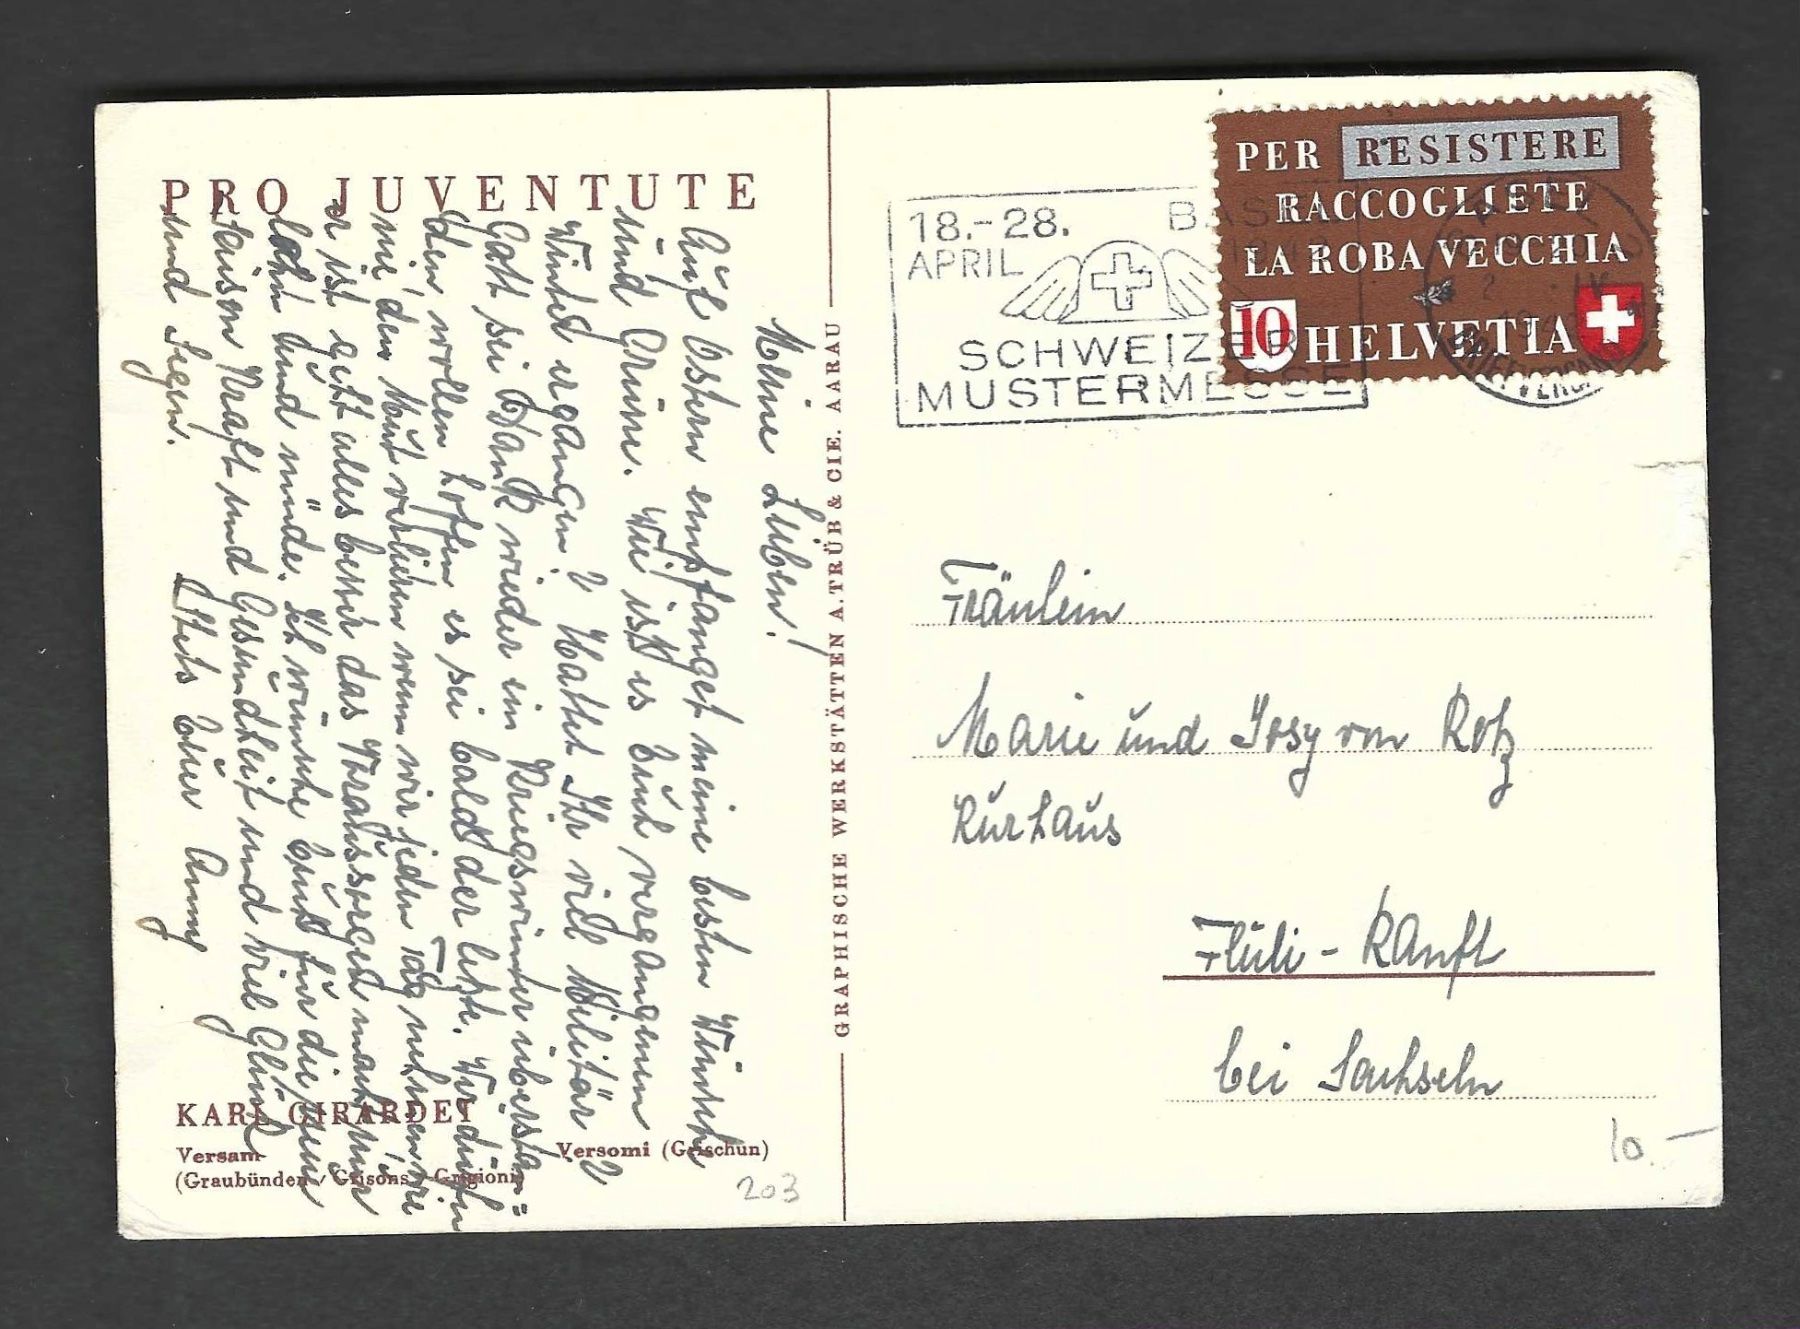 PRO JUVENTUTE
Meine Lieben!
Auf Ostern empfanget meine besten Wünsche
und Grüsse. Wie ist es Euch vergangenen
Winter ergangen? Hattet Ihr viel Militär?
Gott sei Dank wieder ein Kriegswinter überstan=
den, wollen hoffen es sei bald der letzte. Wir dürfen
nie den Mut verlieren wenn wir jeden Tag nehmen wie
er ist geht alles besser das Voraussorgen macht nur
und müde. Ich wünsche Euch für die
Kraft und Gesundheit und viel Glück
und Segen. Stets Eure Anny
KARL GIRARDET
Versam
(Graubünden / Grisons / Grigioni)
Versomi (Grischun)
203
GRAPHISCHE WERKSTÄTTEN A. TRÜB & CIE. AARAU
18.-28. BASEL
APRIL
SCHWEIZER
MUSTERMESSE
PER RESISTERE
RACCOGLIETE
LA ROBA VECCHIA
10 HELVETIA
BASEL
BRIEFVERSAND
Fräulein
Marie und Josy von Rotz
Kurhaus
Flüli - Ranft
bei Sachseln
10.-